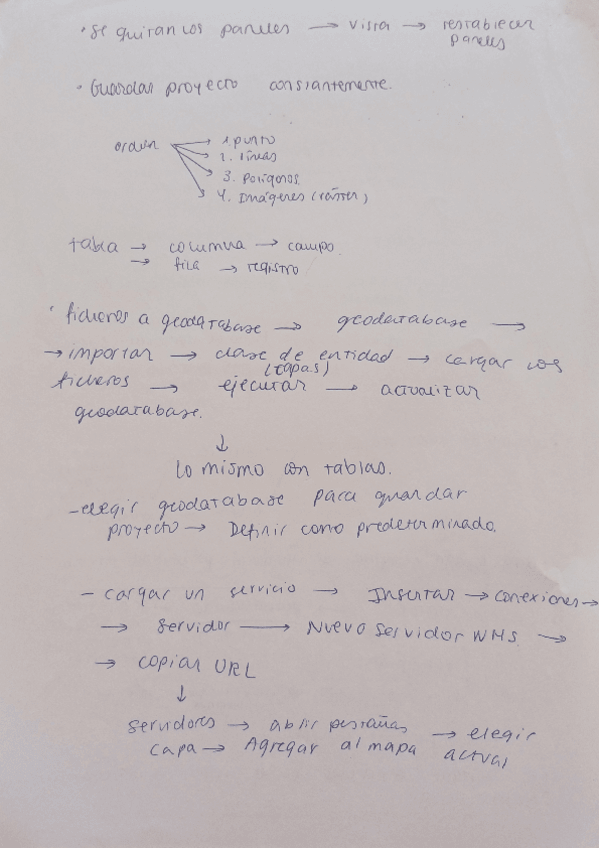 · Se quitan los paneles → Vista → restablecer
paneles
· Guardar proyecto constantemente.
orden → 1 punto
→ 2. líneas
→ 3. Polígonos
→ 4. Imágenes (ráster)
tabla → columna → campo.
→ fila → registro
· ficheros a geodatabase → geodatabase →
→ importar → clase de entidad → cargar los
(capas)
ficheros → ejecutar → actualizar
geodatabase.
↓
Lo mismo con tablas.
- elegir geodatabase para guardar
proyecto → Definir como predeterminado.
- cargar un servicio → Insertar → conexiones →
→ servidor → Nuevo Servidor WMS. →
→ copiar URL
↓
Servidores → abrir pestañas → elegir
capa → Agregar al mapa actual